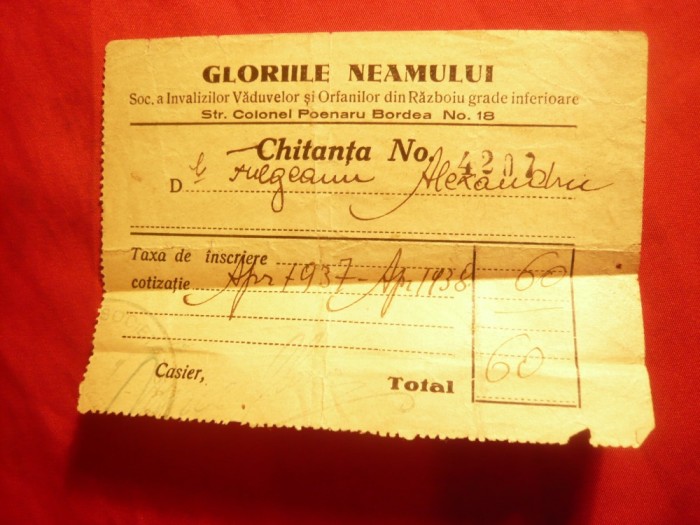 GLORIILE NEAMULUI
Soc. a Invalizilor Văduvelor și Orfanilor din Războiu grade inferioare
Str. Colonel Poenaru Bordea No. 18
Chitanța No. 4207
D Alexandru
Taxa de înscriere
cotizație Apr 1937 - Apr 1938 60
Casier,
Total 60